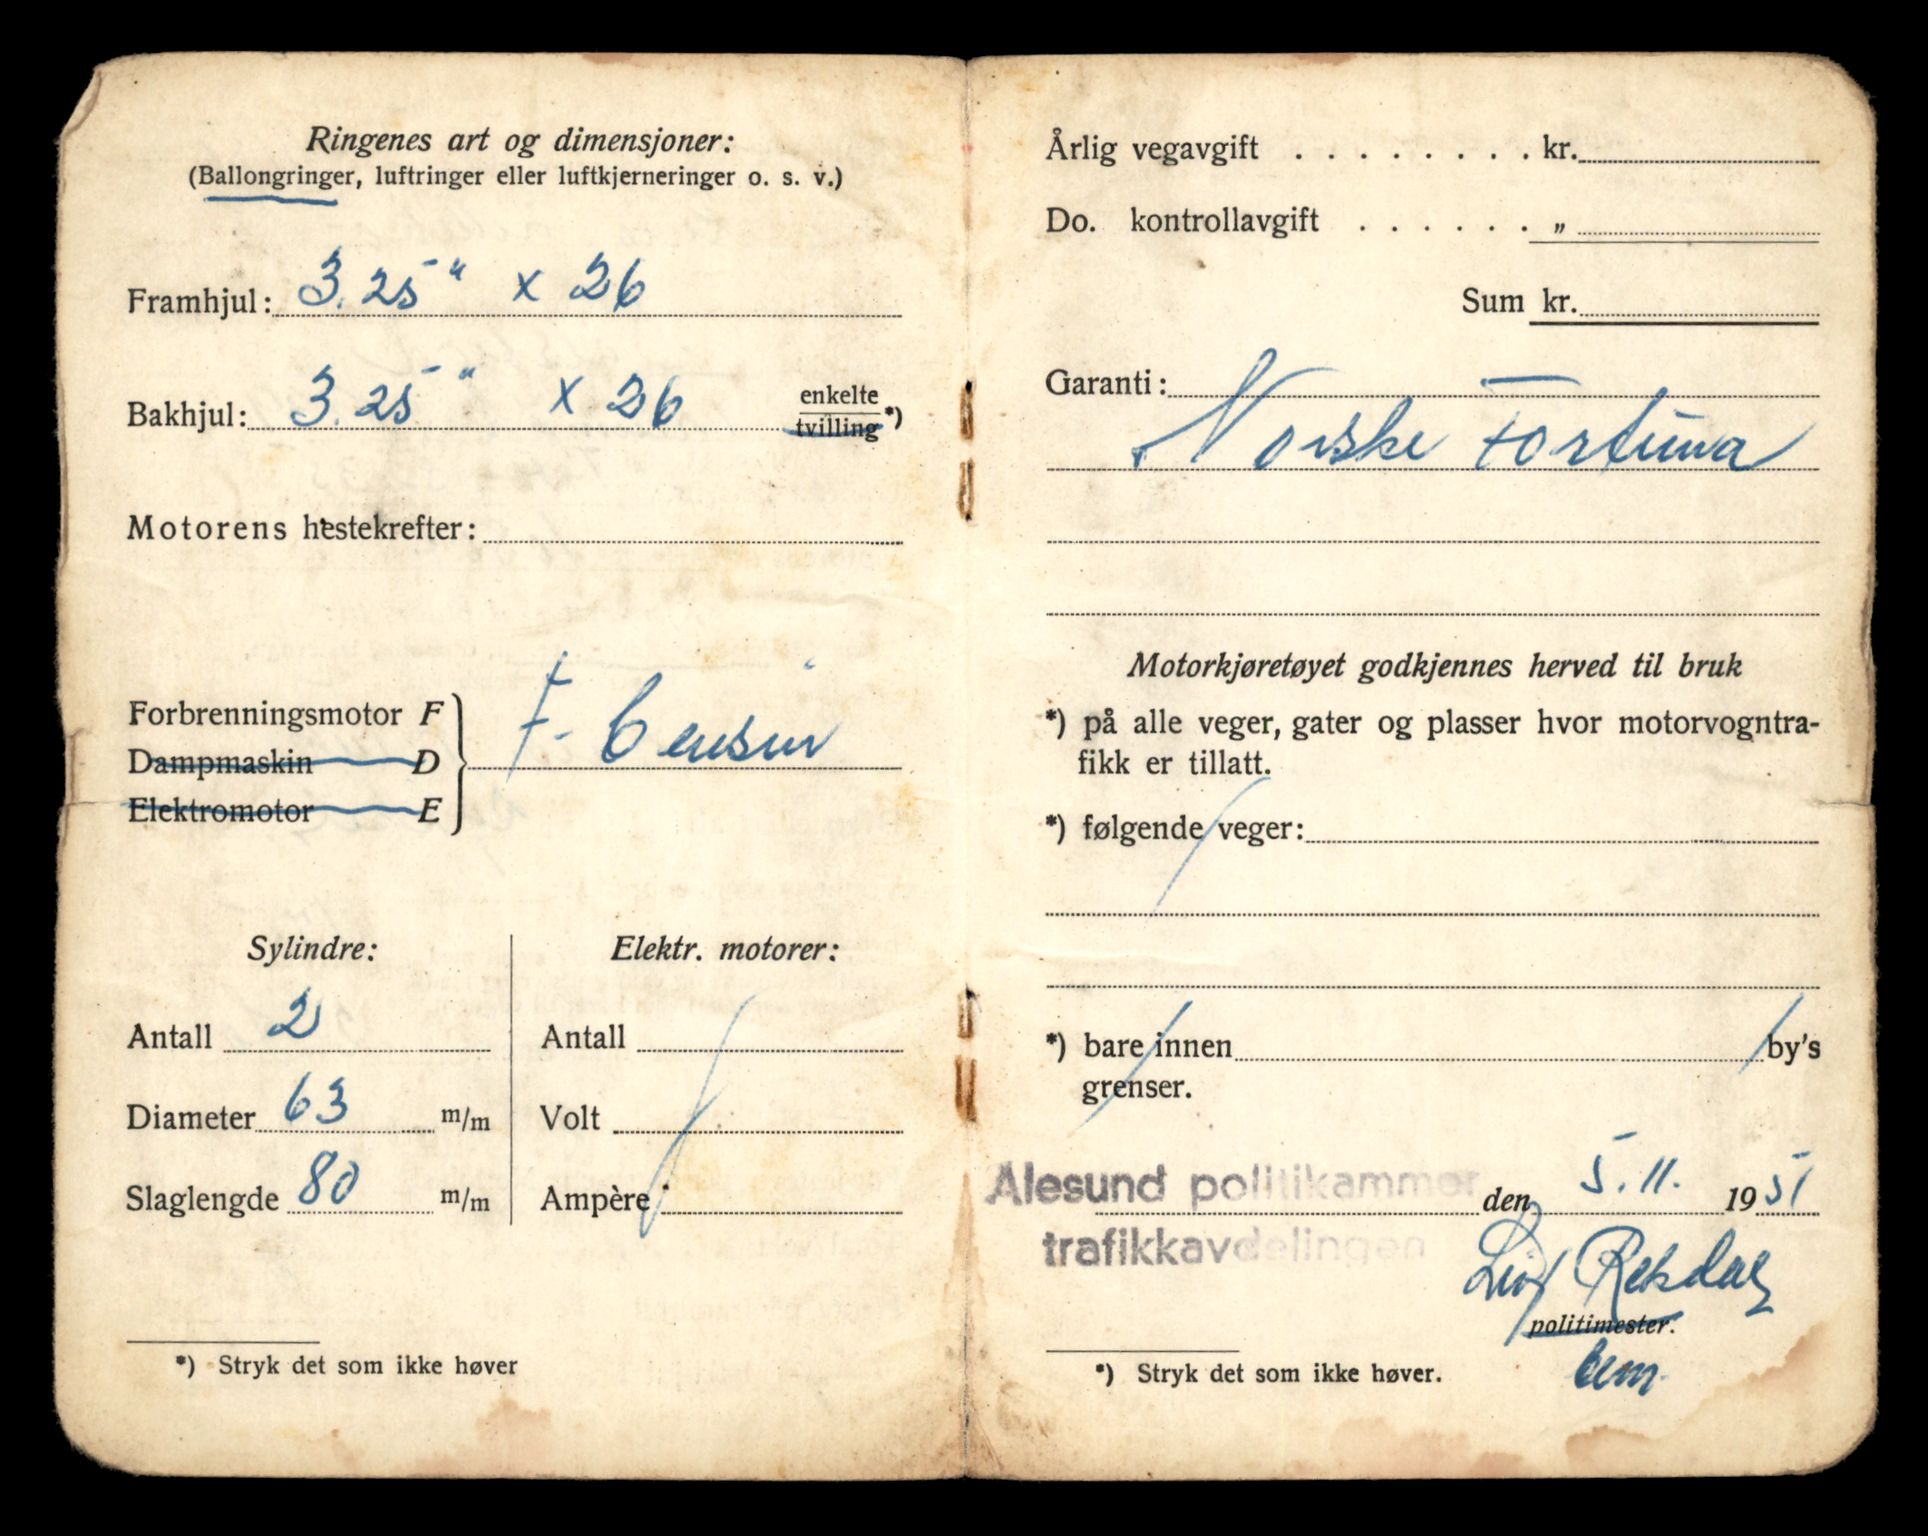 Ringenes art og dimensjoner:
(Ballongringer, luftringer eller luftkjerneringer o. s. v.)
Framhjul: 3.25" x 26
Bakhjul: 3.25" x 26 enkelte
tvilling *)
Motorens hestekrefter:
Forbrenningsmotor F
Dampmaskin D F- bensin
Elektromotor E
Sylindre:
Antall 2
Diameter 63 m/m
Slaglengde 80 m/m
Elektr. motorer:
Antall
Volt
Ampère
*) Stryk det som ikke høver
Årlig vegavgift . . . . . . . . kr.
Do. kontrollavgift . . . . . . „
Sum kr.
Garanti:
Norske Fortuna
Motorkjøretøyet godkjennes herved til bruk
*) på alle veger, gater og plasser hvor motorvogntra-
fikk er tillatt.
*) følgende veger:
*) bare innen by's
grenser.
Ålesund politikammer den 5.11. 1951
trafikkavdelingen
Leif Rekdal
politimester.
*) Stryk det som ikke høver.